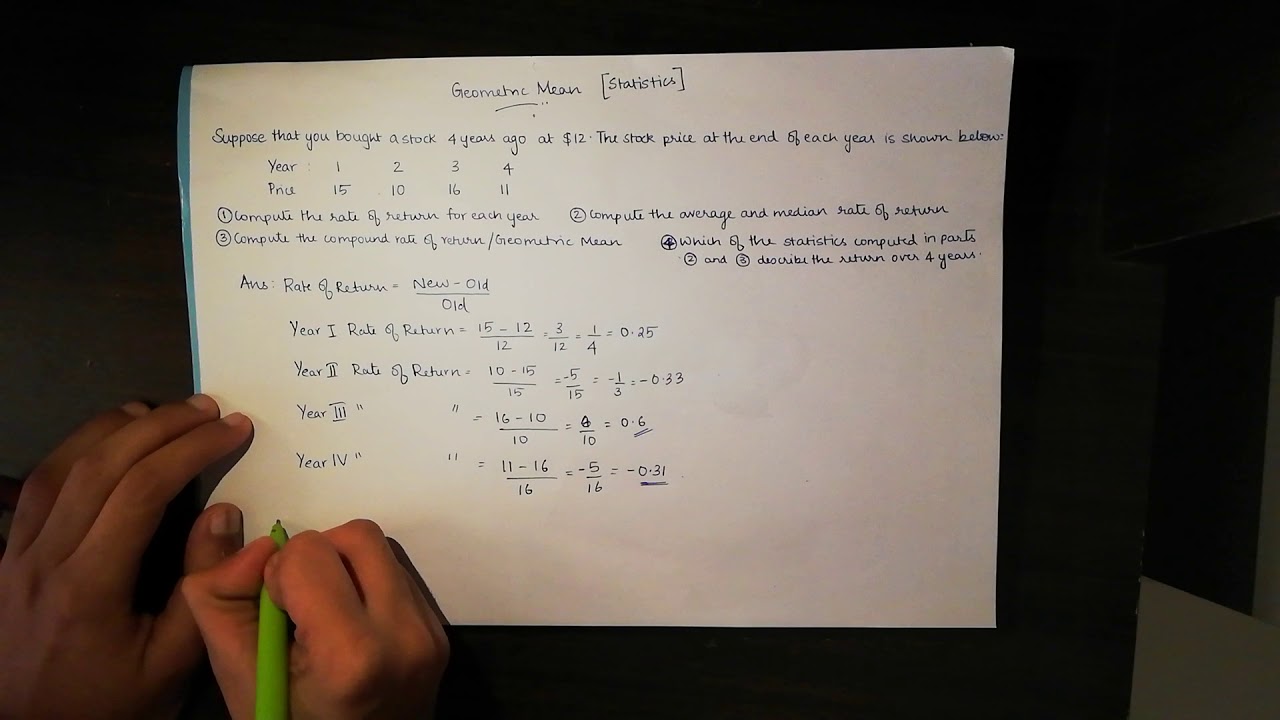 Geometric Mean [Statistics]
Suppose that you bought a stock 4 years ago at $12. The stock price at the end of each year is shown below:
Year : 1 2 3 4
Price 15 10 16 11
① Compute the rate of return for each year ② Compute the average and median rate of return
③ Compute the compound rate of return/Geometric Mean ④ Which of the statistics computed in parts
② and ③ describe the return over 4 years.
Ans: Rate of Return = New - Old / Old
Year I Rate of Return = 15 - 12 / 12 = 3/12 = 1/4 = 0.25
Year II Rate of Return = 10 - 15 / 15 = -5/15 = -1/3 = -0.33
Year III " " = 16 - 10 / 10 = 6/10 = 0.6
Year IV " " = 11 - 16 / 16 = -5/16 = -0.31